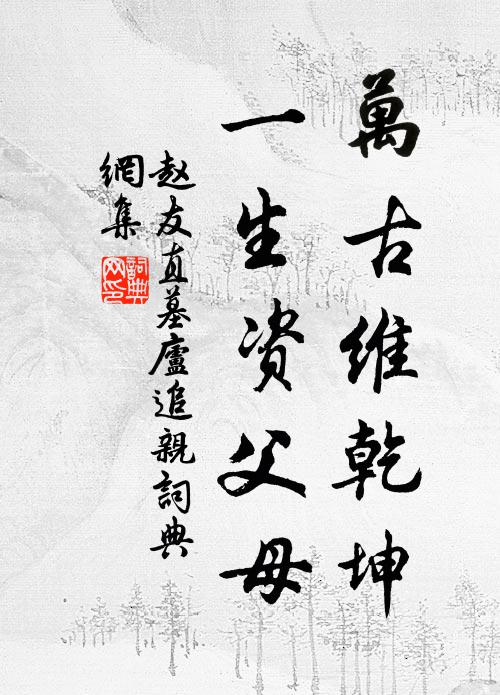 萬古維乾坤
一生资父母
赵友直墓廬追親詞典
網集
詞典
网印